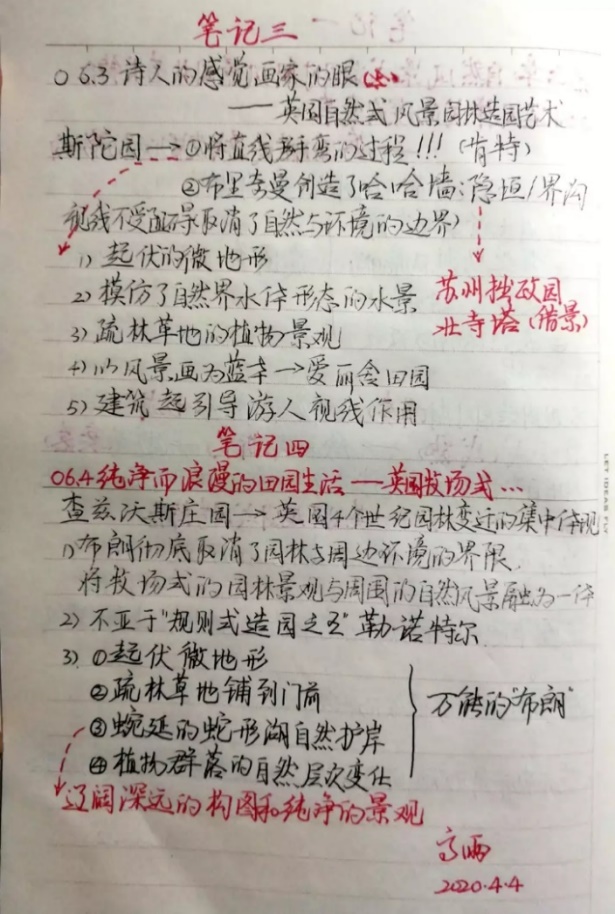 笔记三
06.3 诗人的感觉画家的眼(上)
——英国自然式风景园林造园艺术
斯陀园→①将直线掰弯的过程!!!(肯特)
②布里奇曼创造了哈哈墙:隐垣/界沟
视线不受阻碍取消了自然与环境的边界)
1) 起伏的微地形
2) 模仿了自然界水体形态的水景
3) 疏林草地的植物景观
4) 以风景画为蓝本→爱丽舍田园
5) 建筑起引导游人视线作用
苏州拙政园
北寺塔(借景)
笔记四
06.4 纯净而浪漫的田园生活——英国牧场式…
查兹沃斯庄园→英国4个世纪园林变迁的集中体现
1) 布朗彻底取消了园林与周边环境的界限.
将牧场式的园林景观与周围的自然风景融为一体
2) 不亚于"规则式造园之王"勒·诺特尔
3) ①起伏微地形
②疏林草地铺到门前
③蜿延的蛇形湖自然护岸
④植物群落的自然层次变化
万能的"布朗"
辽阔深远的构图和纯净的景观
2020.4.4